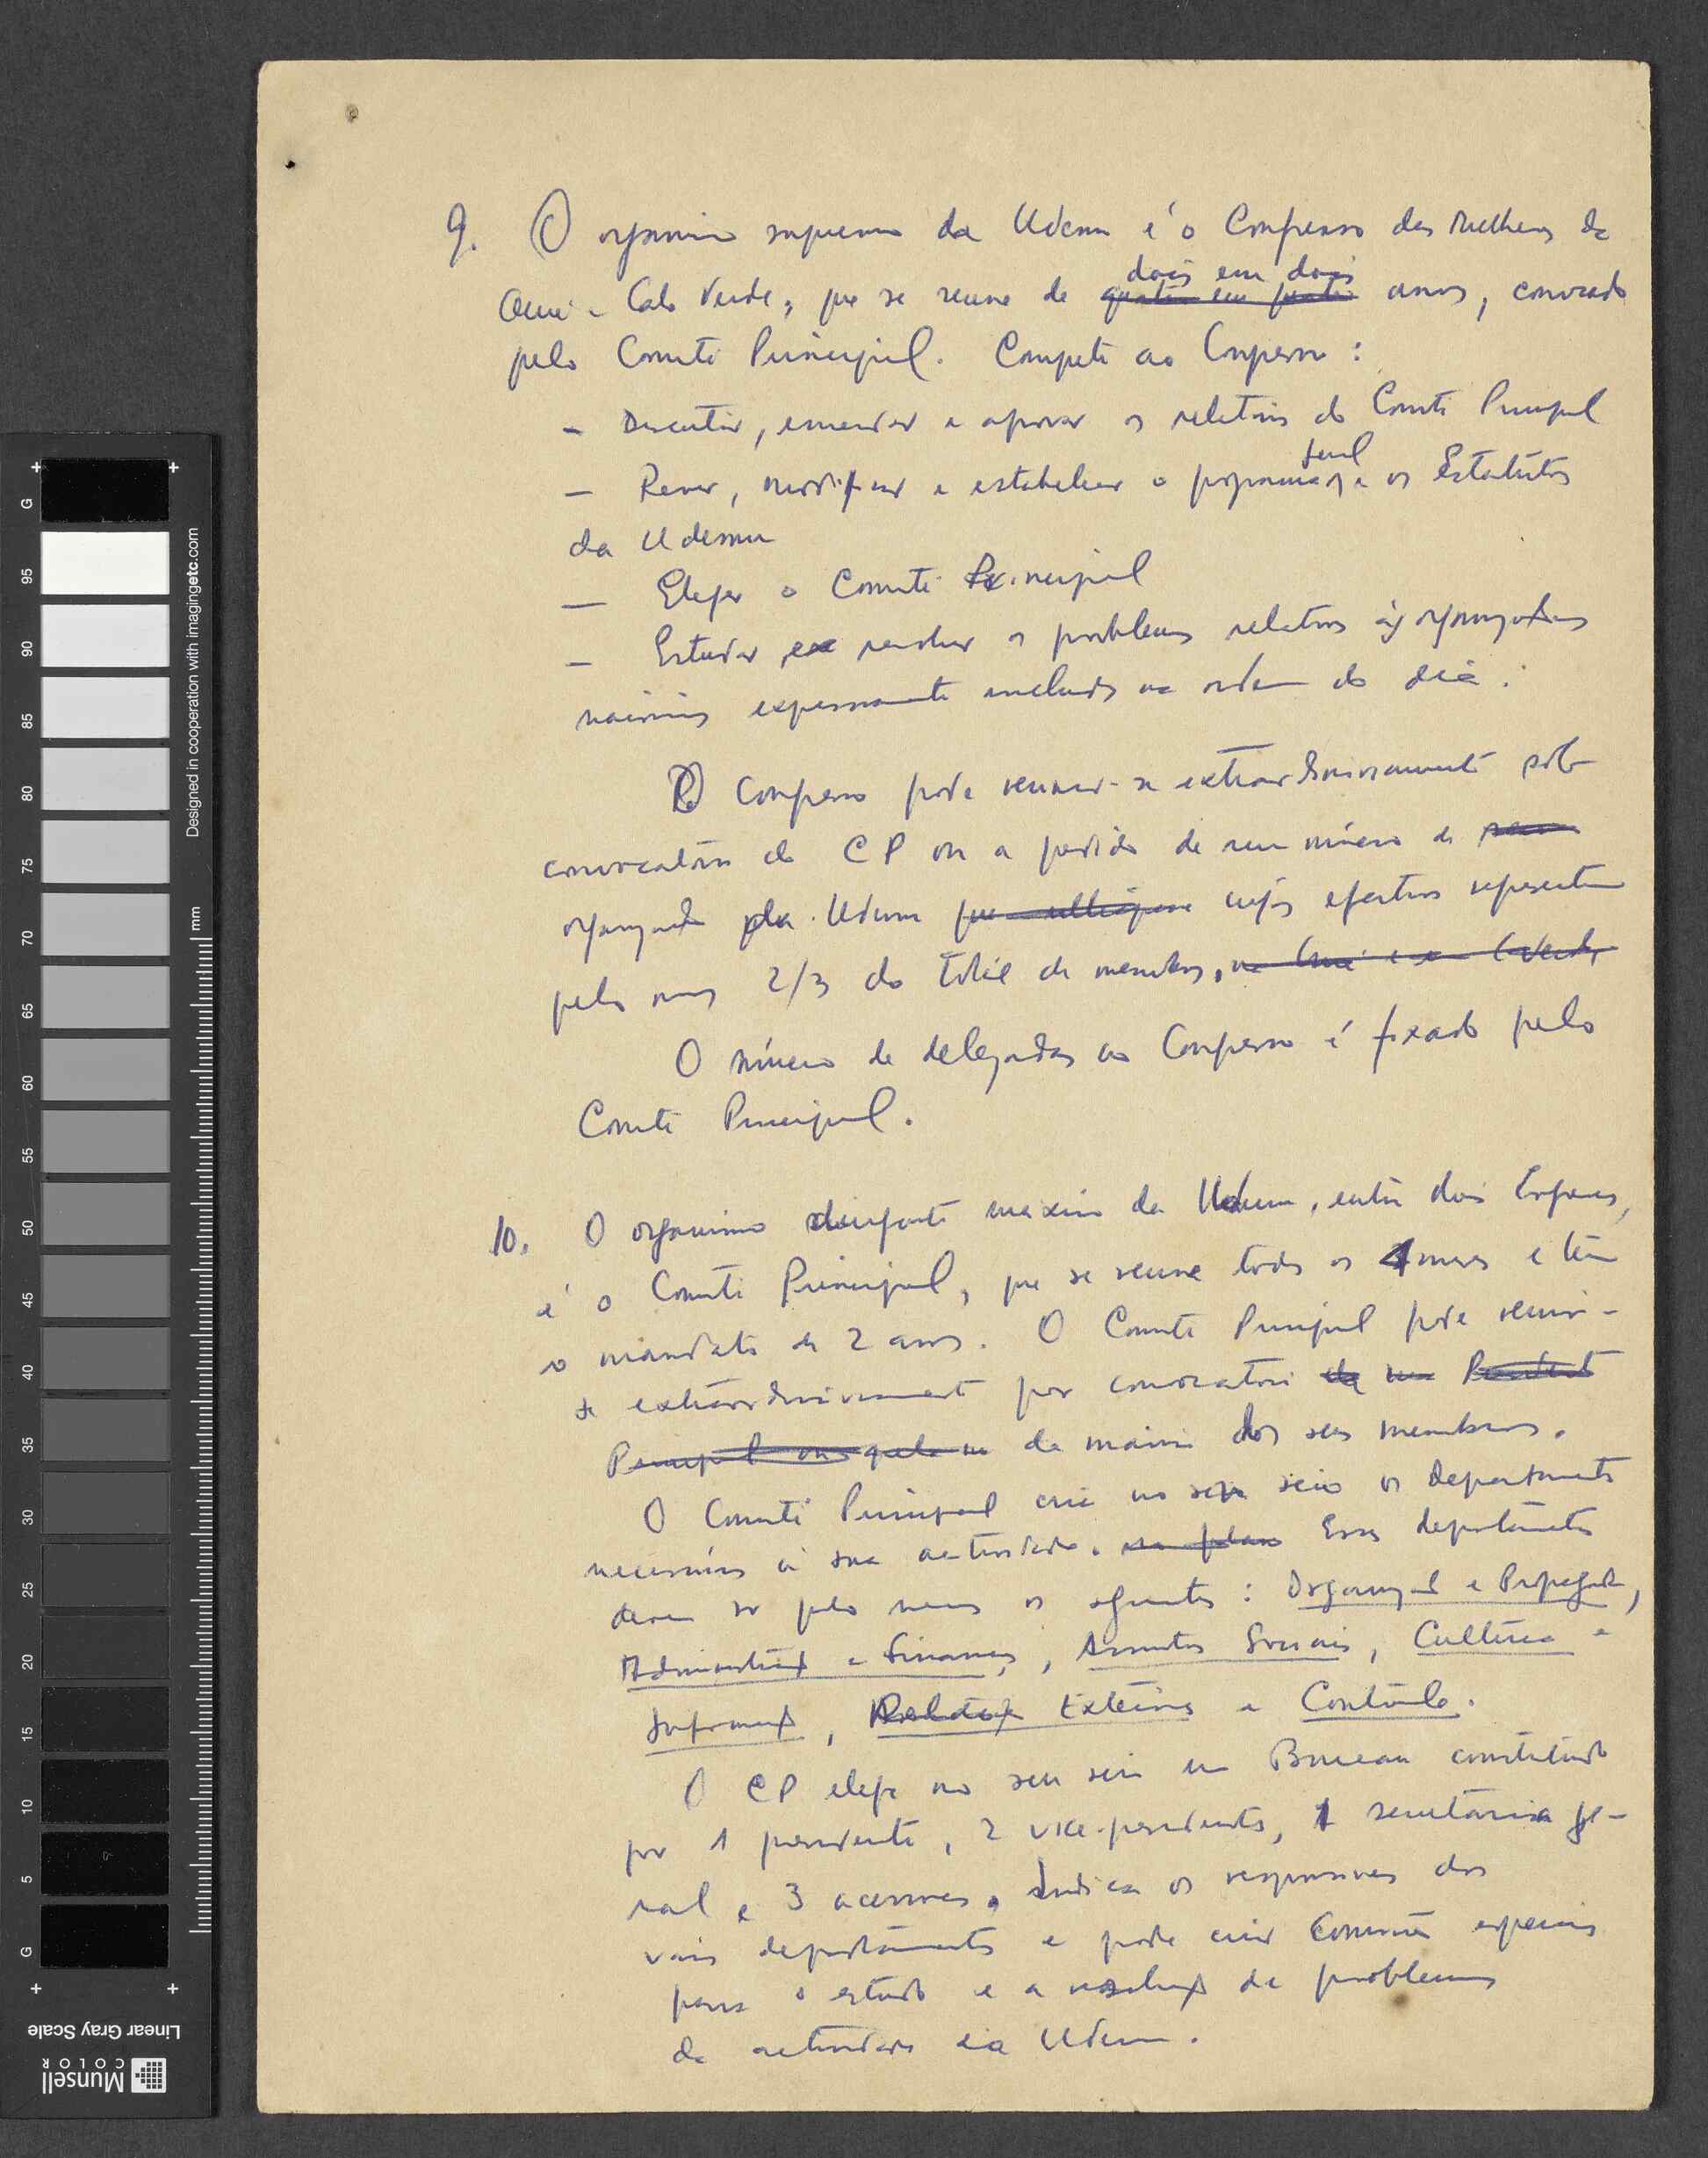 9. O organismo supremo da Udemu é o Congresso das Mulheres da
Guiné e Cabo Verde, que se reune de quatro em quatro dois em dois anos, convocado
pelo Comité Principal. Compete ao Congresso:
- Discutir, emendar e aprovar os relatórios do Comité Principal
- Rever, modificar e estabelecer o programa geral e os Estatutos
da Udemu
- Eleger o Comité Principal
- Estudar e resolver os problemas relativos às organizações
expressamente incluidos na ordem do dia.
O Congresso pode reunir-se extraordinariamente sob
convocatória do CP ou a pedido de um número de
organizações da Udemu cujos efectivos representem
pelo menos 2/3 do total de membros, na Guiné e em C. Verde,
O número de delegadas ao Congresso é fixado pelo
Comité Principal.
10. O organismo dirigente máximo da Udemu, entre dois Congressos,
é o Comité Principal, que se reune todos os 4 meses e tem
o mandato de 2 anos. O Comité Principal pode reunir-
se extraordinariamente por convocatória da sua Presidente
Principal ou pela da maioria dos seus membros.
O Comité Principal cria no seu seio os departamentos
necessários à sua actividade. no plano Esses departamentos
devem ser pelo menos os seguintes: Organização e Propaganda,
Administração e Finanças, Assuntos Sociais, Cultura e
Informação, Relações Exteriores e Contrôle.
O CP elege no seu seio um Bureau constituido
por 1 presidente, 2 vice-presidentes, 1 secretária ge-
ral e 3 acessores. Indica os responsáveis dos
vários departamentos e pode criar Comissões especiais
para o estudo e a resolução de problemas
da actividade da Udemu.
Designed in cooperation with imagingetc.com
mm
G 95 90 85 80 75 70 65 60 55 50 45 40 35 30 25 20 15 10 5 G
Linear Gray Scale
Munsell
COLOR